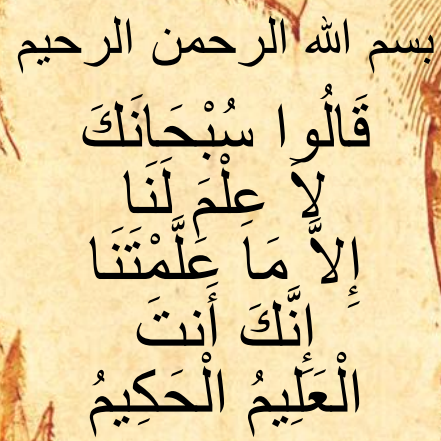 بسم الله الرحمن الرحيم
قَالُوا سُبْحَانَكَ
لاَ عِلْمَ لَنَا
إِلاَّ مَا عَلَّمْتَنَا
إِنَّكَ أَنتَ
الْعَلِيمُ الْحَكِيمُ